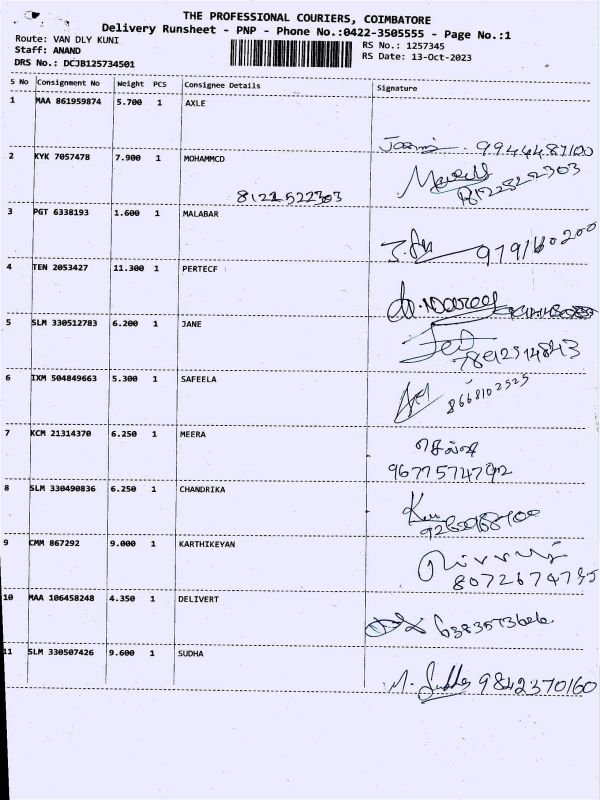 THE PROFESSIONAL COURIERS, COIMBATORE
Delivery Runsheet - PNP - Phone No.:0422-3505555 - Page No.:1
Route: VAN DLY KUNI
RS No.: 1257345
Staff: ANAND
RS Date: 13-Oct-2023
DRS No.: DCJB125734501
S No Consignment No Weight PCS Consignee Details Signature
1 MAA 861959874 5.700 1 AXLE
9944487100
2 KYK 7057478 7.900 1 MOHAMMCD
8122522303
8122522303
3 PGT 6338193 1.600 1 MALABAR
9791660200
4 TEN 2053427 11.300 1 PERTECF
5 SLM 330512783 6.200 1 JANE
78912514843
6 IXM 504849663 5.300 1 SAFEELA
8668102525
7 KCM 21314370 6.250 1 MEERA
செல்வி
8 SLM 330490836 6.250 1 CHANDRIKA
9 CMM 867292 9.000 1 KARTHIKEYAN
8072674795
10 MAA 106458248 4.350 1 DELIVERT
11 SLM 330507426 9.600 1 SUDHA
M. Sudha 9842370160